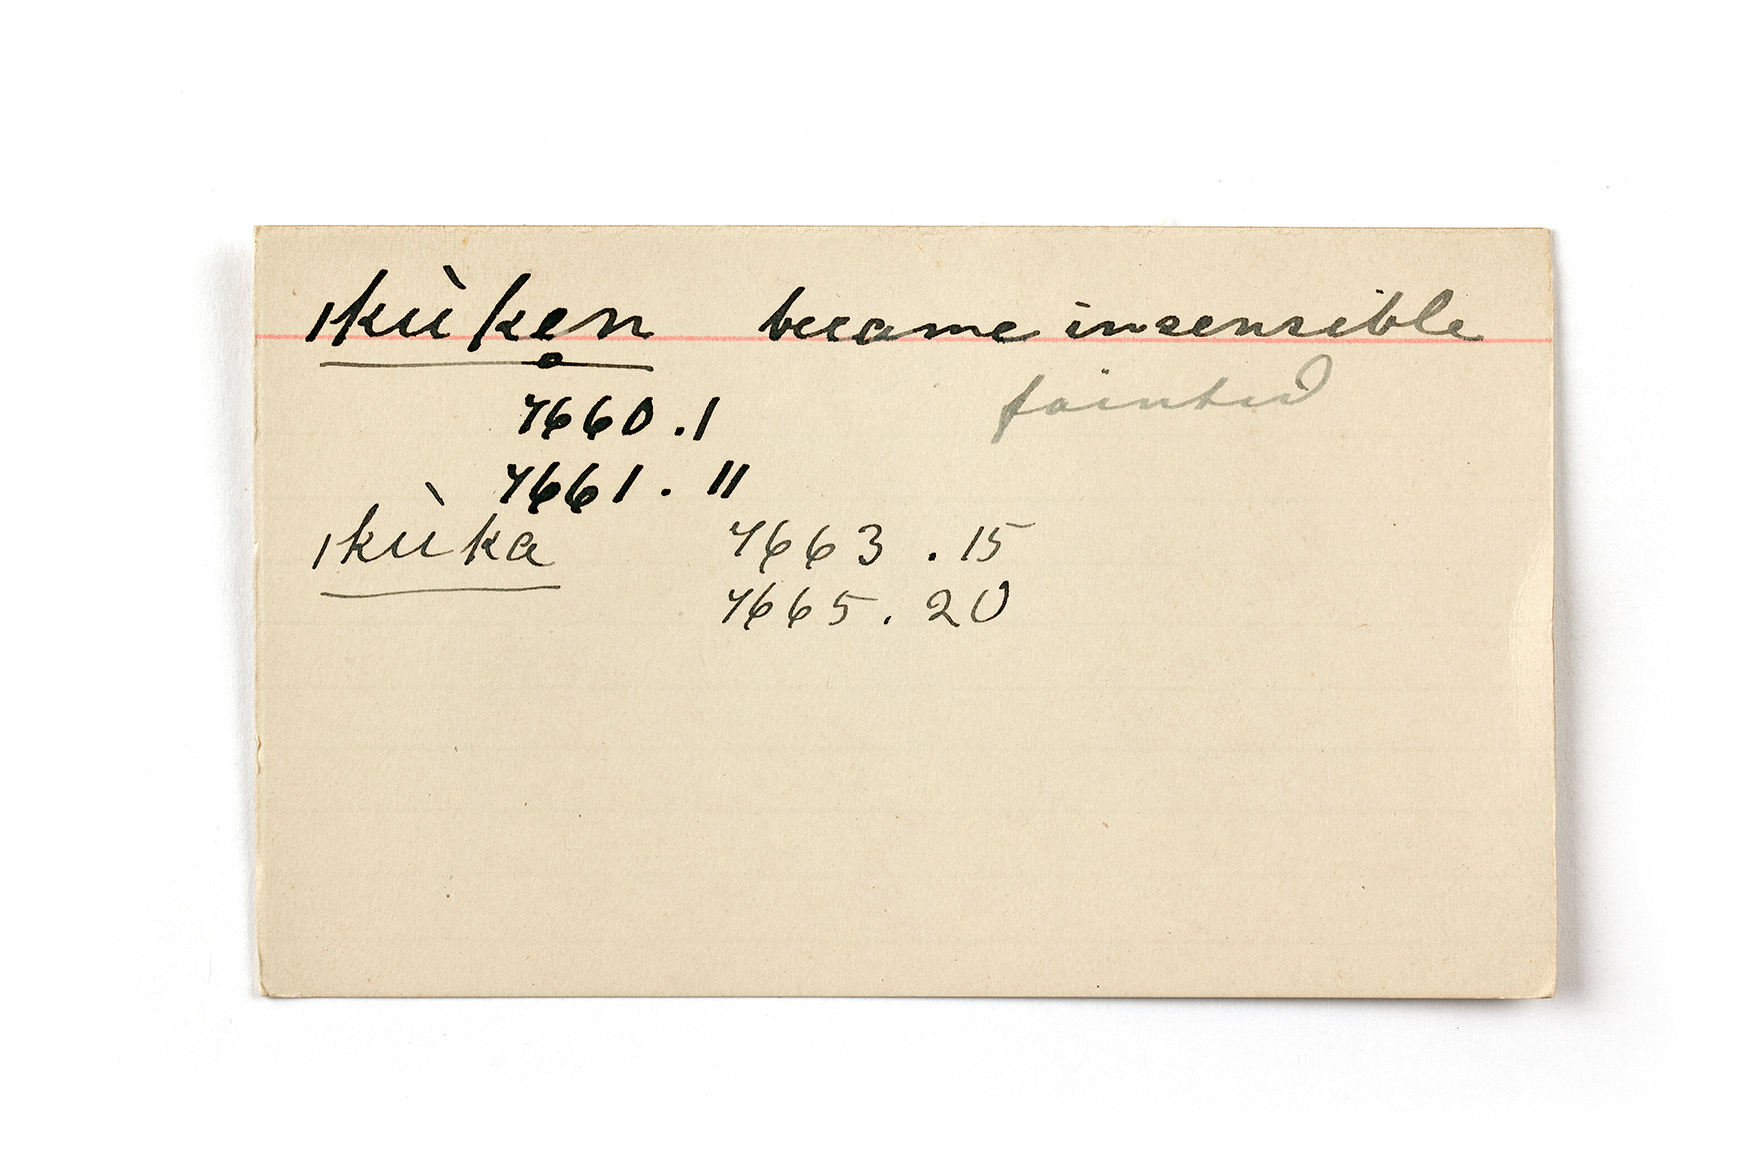 ıkùkẹn became insensible
fainted
7660.1
7661.11
ıkùka 7663.15
7665.20